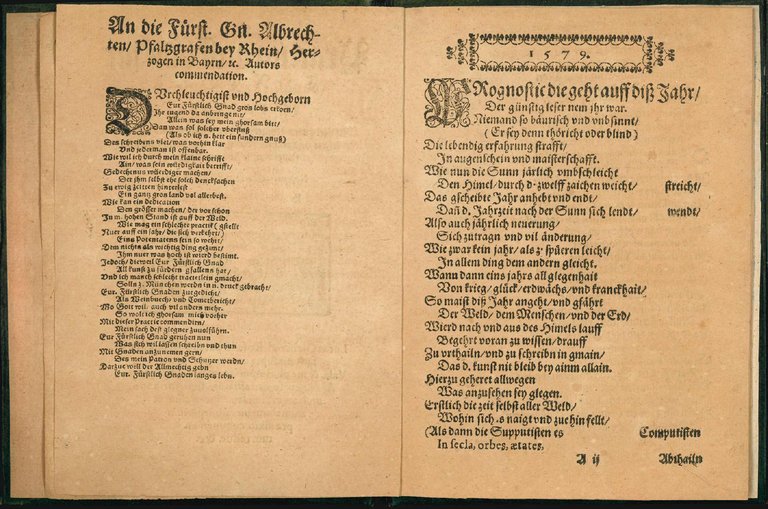 An die Fürst. Gn. Albrech-
ten/ Pfaltzgrafen bey Rhein/ Her-
zogen in Bayrn/ ꝛc. Autors
commendation.
DVrchleuchtigist vnd Hochgeborn
Eur Fürstlich Gnad gros lobs erkorn/
Ihr tugend da anbringe nit/
Allein was sey mein ghorsam bitt/
Dan was sol solcher vberfluß
Als ob ich n. hett ein sundern gnuß)
Des schreibens viel/ was vorhin klar
Vnd jederman ist offenbar.
Wie wil ich durch mein klaine schriffe
Ain/ was sein würdigkait betrifft/
Gedechtnus würdiger machen/
Der ihm selbst ehe solch dencksachen
Zu ewig zeitten hinterlest
Ein gantz gron land vol allerbest.
Wie kan ein Dedication
Den grösser machen/ der vor schon
In m. hohen Stand ist guff der Weld.
Wie mag ein schlechte practik (gstellt
Nuer auff ein jahr/ die sich verkehrt/)
Eins Potentatens sein so wehrt/
Dem nichts als wichtig ding gezimt/
Ihm nuer was hoch ist wierd bestimt.
Jedoch/ dieweil Eur Fürstlich Gnad
All kunst zu fürdern gfallens hat/
Vnd ich manch schlecht tractetlein gmacht/
Solls z. München werdn in n. druck gebracht/
Eur. Fürstlich Gnaden zuegedicht/
Als Weinbuech/ vnd Cometbericht/
Wo Gott wil/ auch vil andern mehr.
So wolt ich ghorsam mich vorher
Mit dieser Practic commendirn/
Mein sach dest glegner zuuolführn.
Eur Fürstlich Gnad geruhen nun
Was sich wil lassen schreiben vnd thun
Mit Gnaden anzunemen gern/
Des mein Patron vnd Schutzer werdn/
Darzue well der Allmechtig gebn
Eur. Fürstlich Gnaden langes lebn.
1579.
PRognostic die geht auff diß Jahr/
Der günstig leser nem ihr war.
Niemand so bäurisch vnd vnbsinnt/
(Er sey denn thöricht oder blind)
Die lebendig erfahrung strafft/
In augenschein vnd maisterschafft.
Wie nun die Sunn järlich vmbschleicht
Den Himel/ durch d. zwelff zaichen weicht/ streicht/
Das gscheibte Jahr anhebt vnd endt/
Dañ d. Jahrzeit nach der Sunn sich lendt/ wendt/
Also auch jährlich neuerung/
Sich zutragn vnd vil änderung/
Wie zwar kein jahr/ als z. spüeren leicht/
In allem ding dem andern gleicht.
Wann dann eins jahrs all glegenhait
Von krieg/ glück/ erdwächs/ vnd kranckhait/
So maist diß Jahr angeht/ vnd gfährt
Der Weld/ dem Menschen/ vnd der Erd/
Wierd nach vnd aus des Himels lauff
Begehrt voran zu wissen/ drauff
Zu vrthailn/ vnd zu schreibn in gmain/
Das d. kunst nit bleib bey ainm allain.
Hierzu geheret allwegen
Was anzusehen sey glegen.
Erstlich die zeit selbst aller Weld/
Wohin sich .s naigt vnd zue hin fellt/
(Als dann die Supputisten es Computisten
In secla, orbes, ætates,
A ij Abthailn